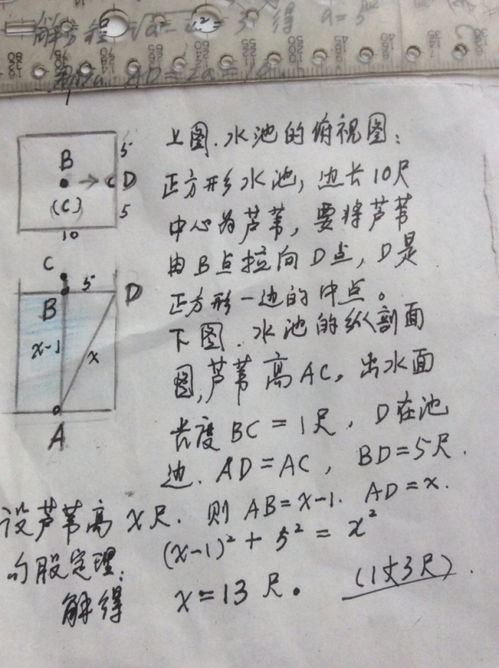 解方程
得 a=5
上图.水池的俯视图:
正方形水池,边长10尺
中心为芦苇,要将芦苇
由B点拉向D点,D是
正方形一边的中点。
下图.水池的纵剖面
图,芦苇高AC,出水面
长度BC=1尺,D在池
边.AD=AC,BD=5尺.
设芦苇高x尺.则AB=x-1.AD=x.
勾股定理:(x-1)²+5²=x²
解得 x=13尺。(1丈3尺).
B 5
C D
(C) 5
10
C
5
B D
x-1 x
A